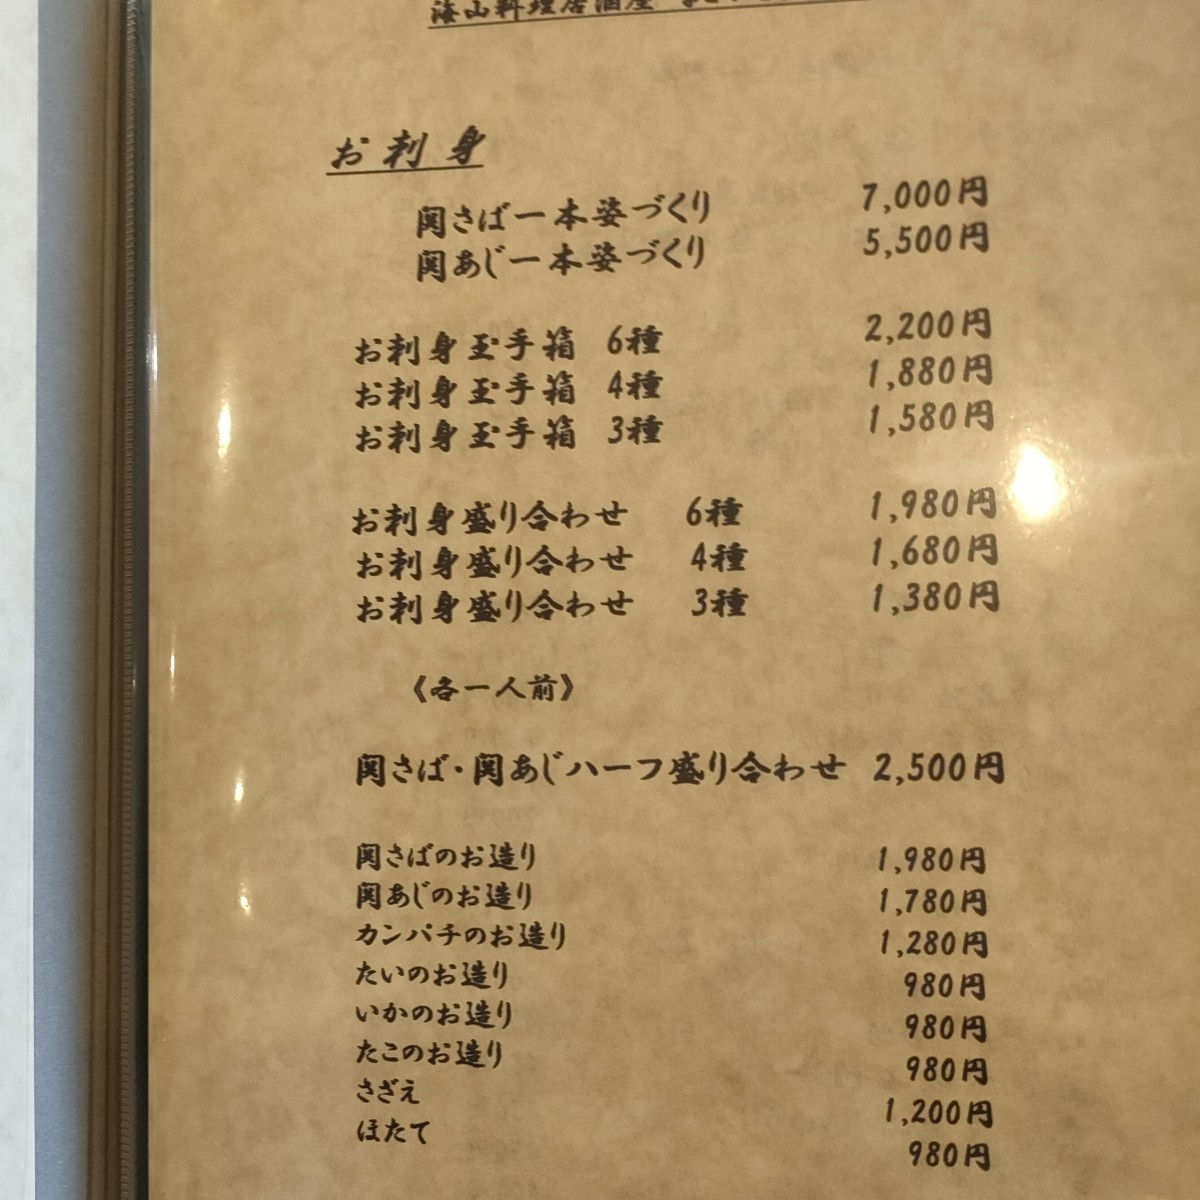 海山料理居酒屋
お刺身
関さば一本姿づくり 7,000円
関あじ一本姿づくり 5,500円
お刺身玉手箱 6種 2,200円
お刺身玉手箱 4種 1,880円
お刺身玉手箱 3種 1,580円
お刺身盛り合わせ 6種 1,980円
お刺身盛り合わせ 4種 1,680円
お刺身盛り合わせ 3種 1,380円
《各一人前》
関さば・関あじハーフ盛り合わせ 2,500円
関さばのお造り 1,980円
関あじのお造り 1,780円
カンパチのお造り 1,280円
たいのお造り 980円
いかのお造り 980円
たこのお造り 980円
さざえ 1,200円
ほたて 980円